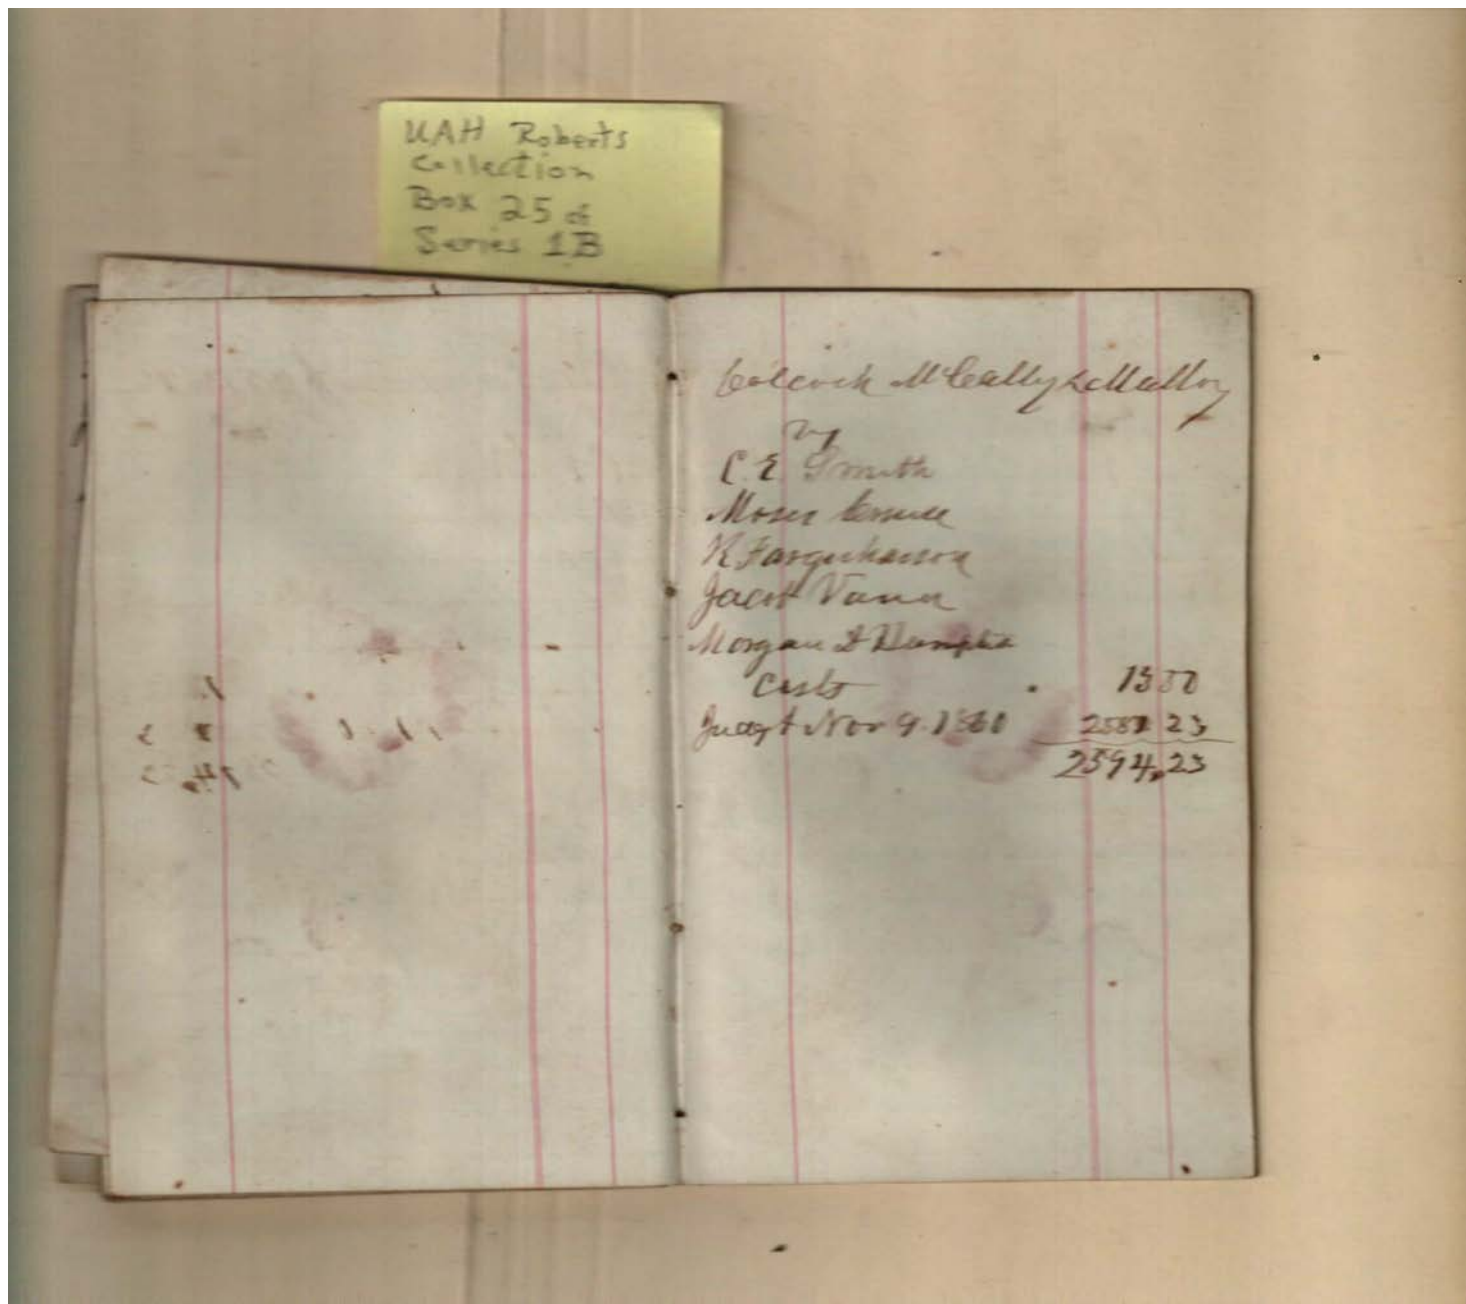 UAH Roberts
Collection
Box 25 of
Series 1B
Colcock McCally & Malloy
vs
C. E. Smith
Moses
R Farquharson
Jacob
Morgan &
Costs
Judgt Nov 9. 1860
2594.23